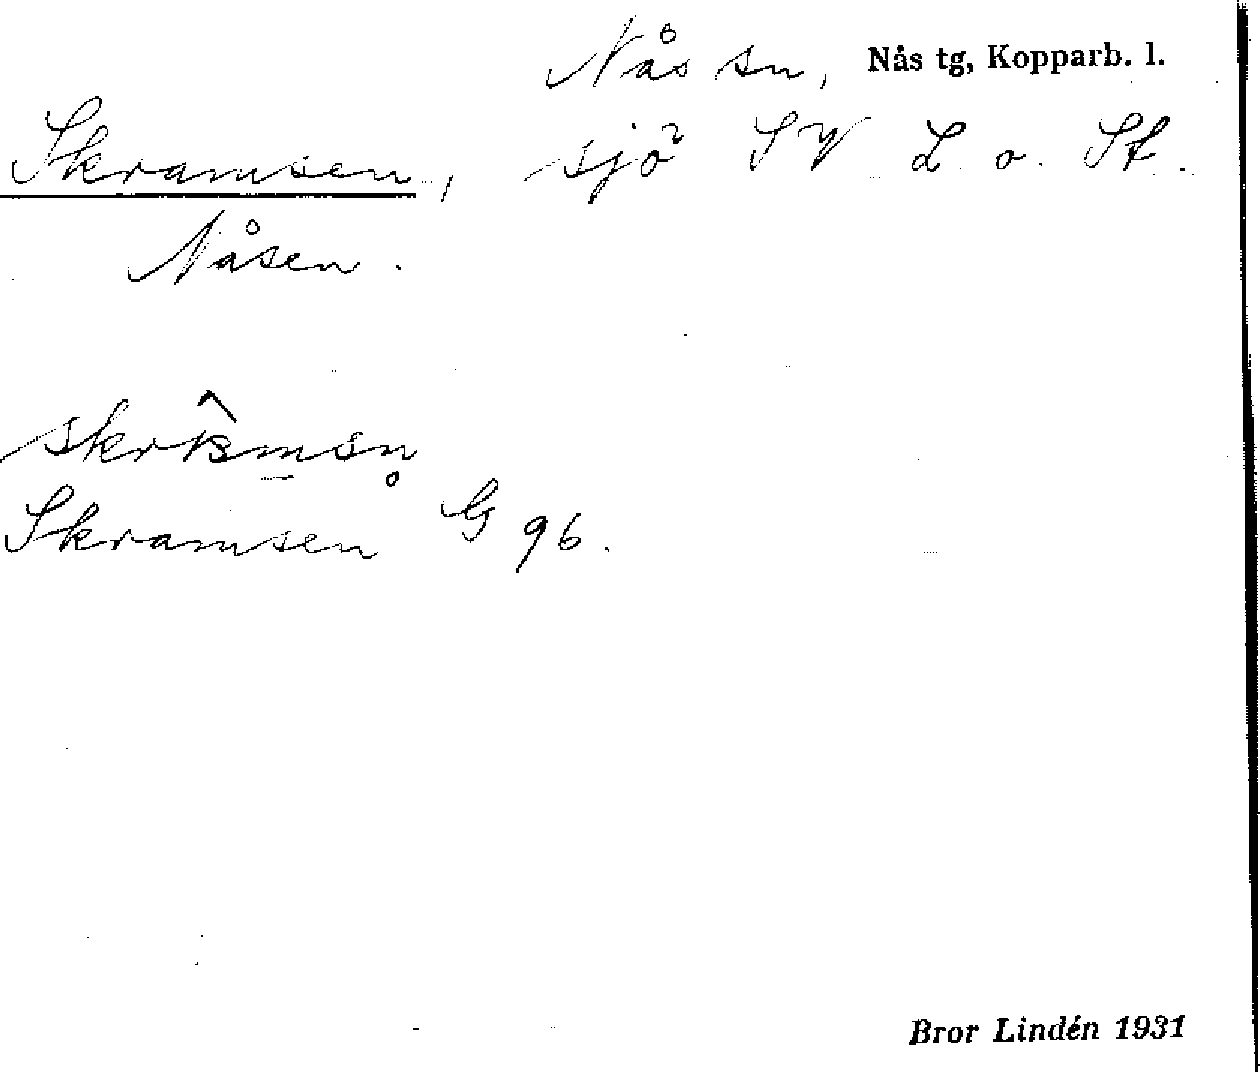 Nås sn, Nås tg, Kopparb. l.
Skramsen, sjö SV L. o. St.
Nåsen.
Skramsen G 96.
Bror Lindén 1931